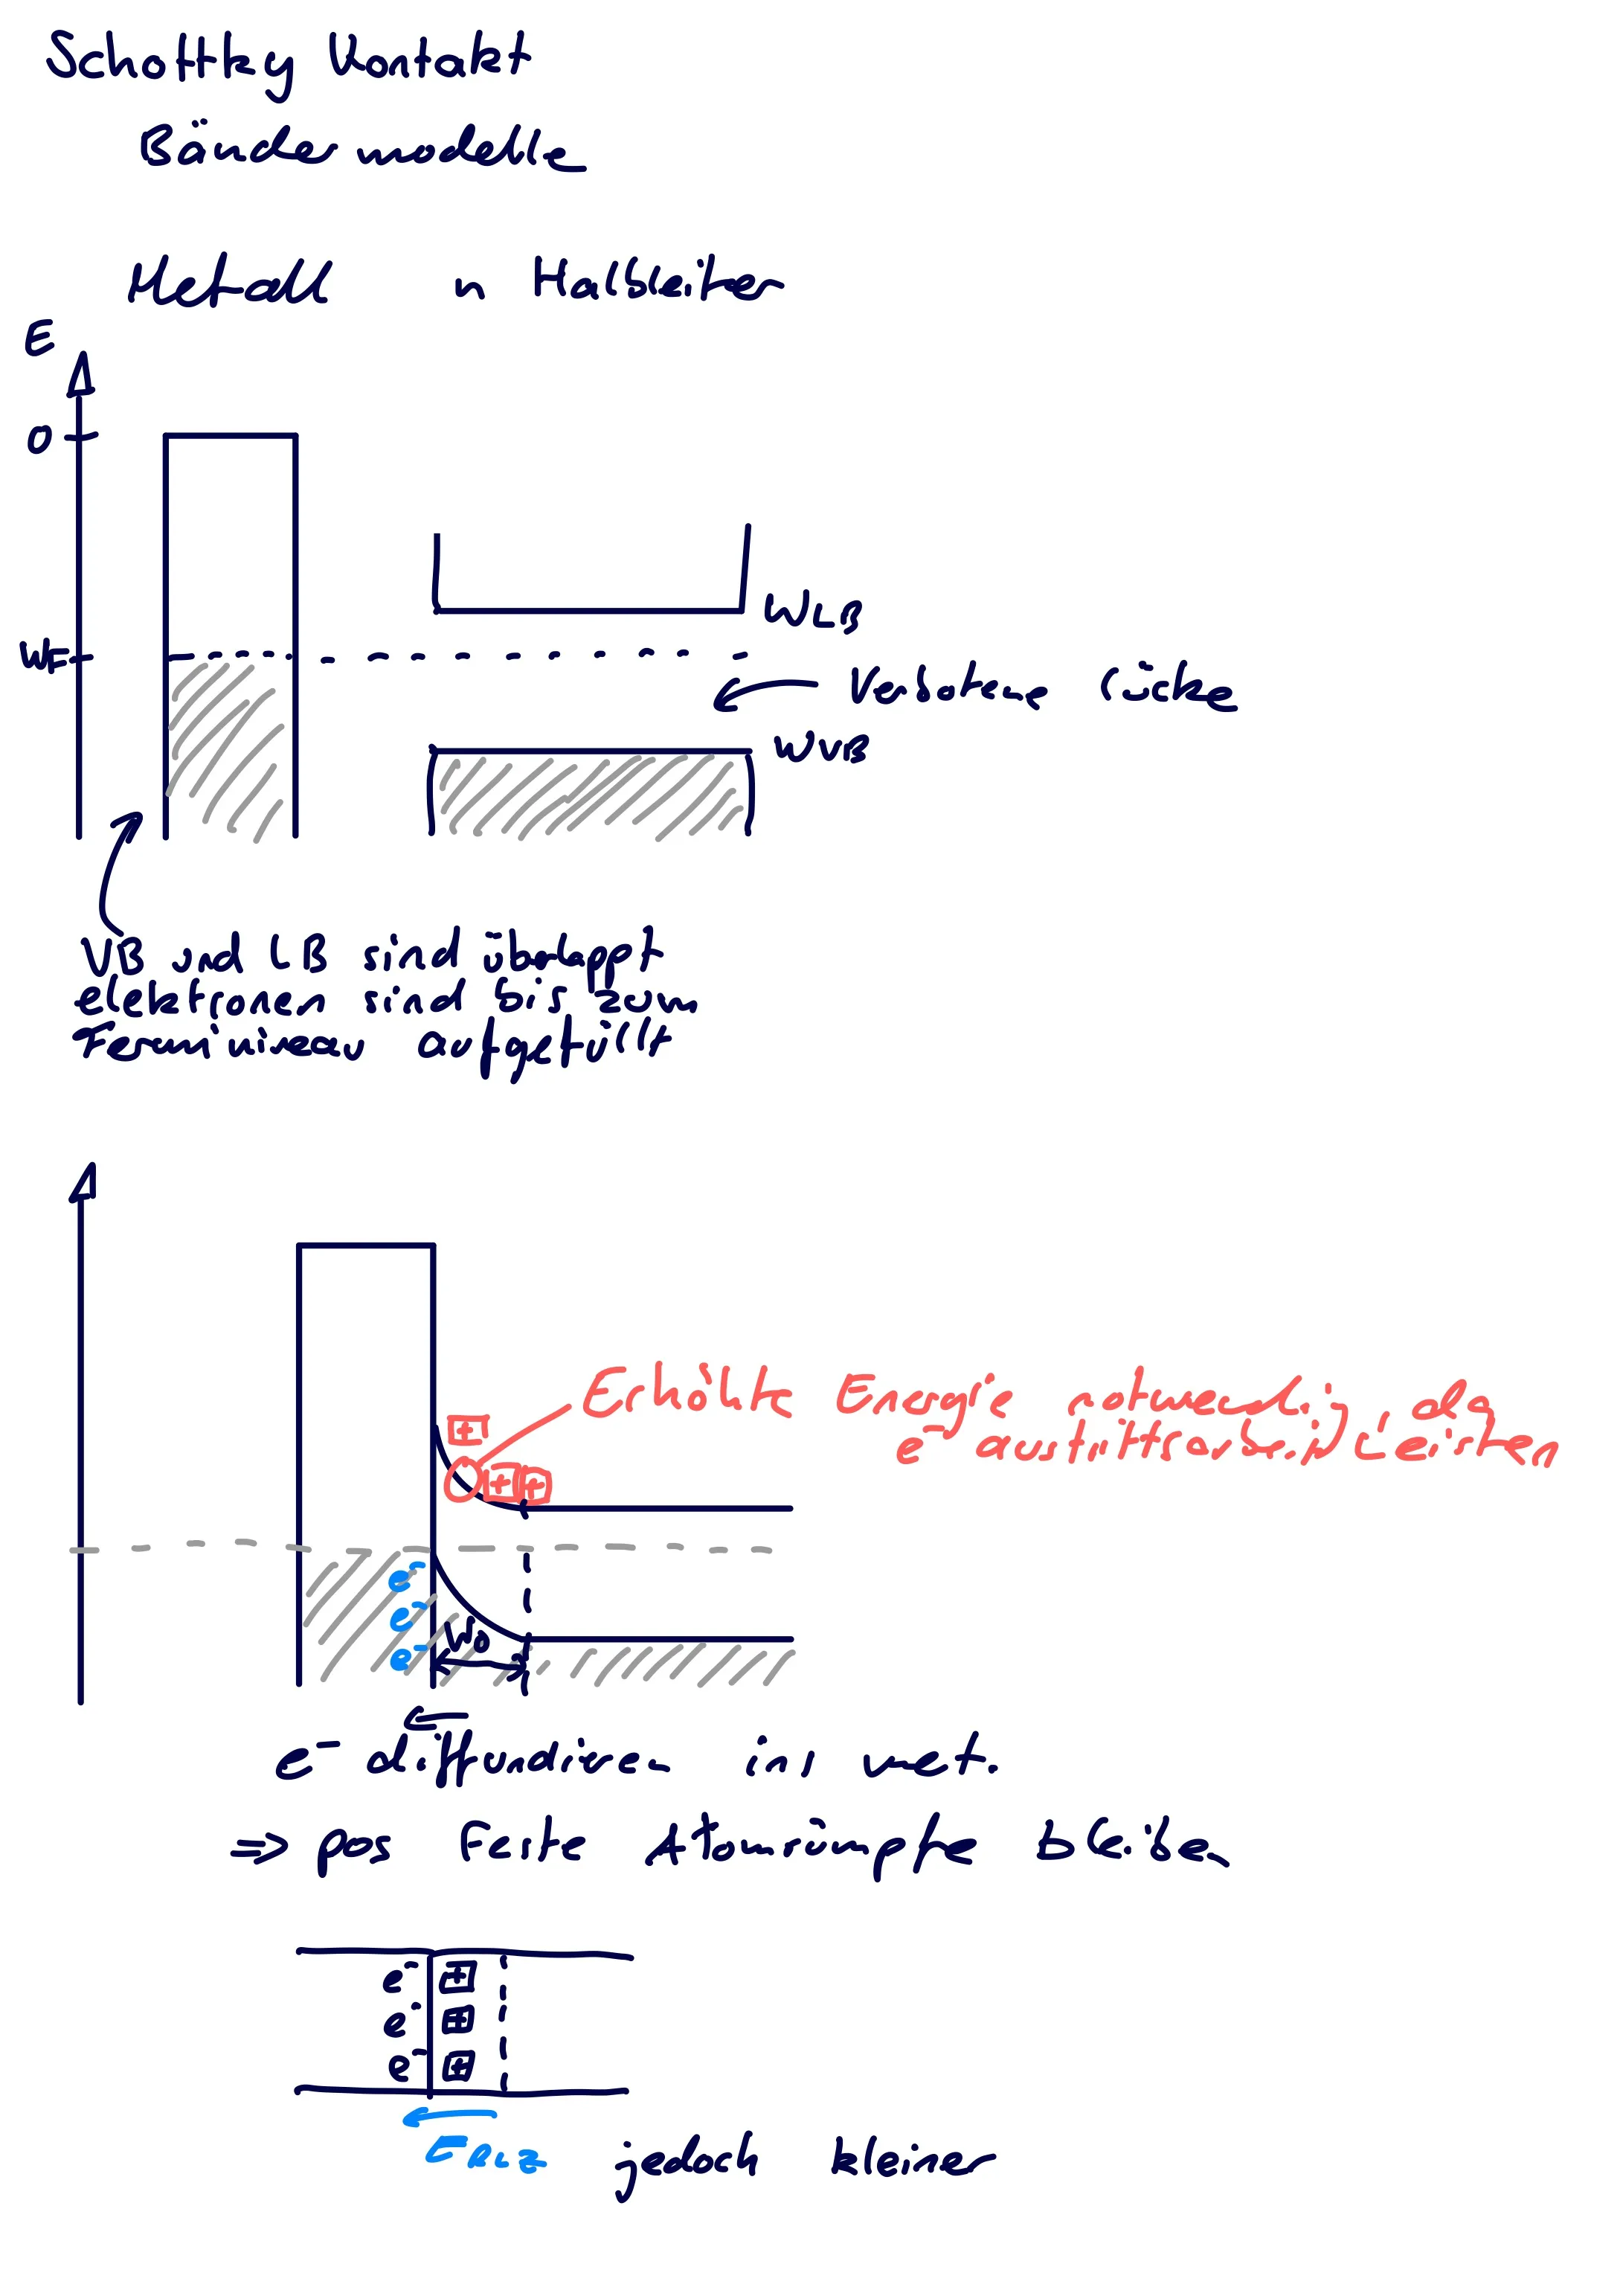 Schottky Kontakt
Bändermodelle
Metall n Halbleiter
E
0
WF
WLB
Verbotene Lücke
WVB
VB und LB sind überlappt
elektronen sind bis zum
Fermi niveau aufgefüllt
Erhöhte Energie notwendig, da
e⁻ austrittsarbeit leisten
+
+ +
e⁻
e⁻
e⁻
W0
e⁻ diffundiren ins met.
⇒ pos Feste Atomrümpfe bleiben
e⁻ +
e⁻ +
e⁻ +
ERLZ jedoch kleiner